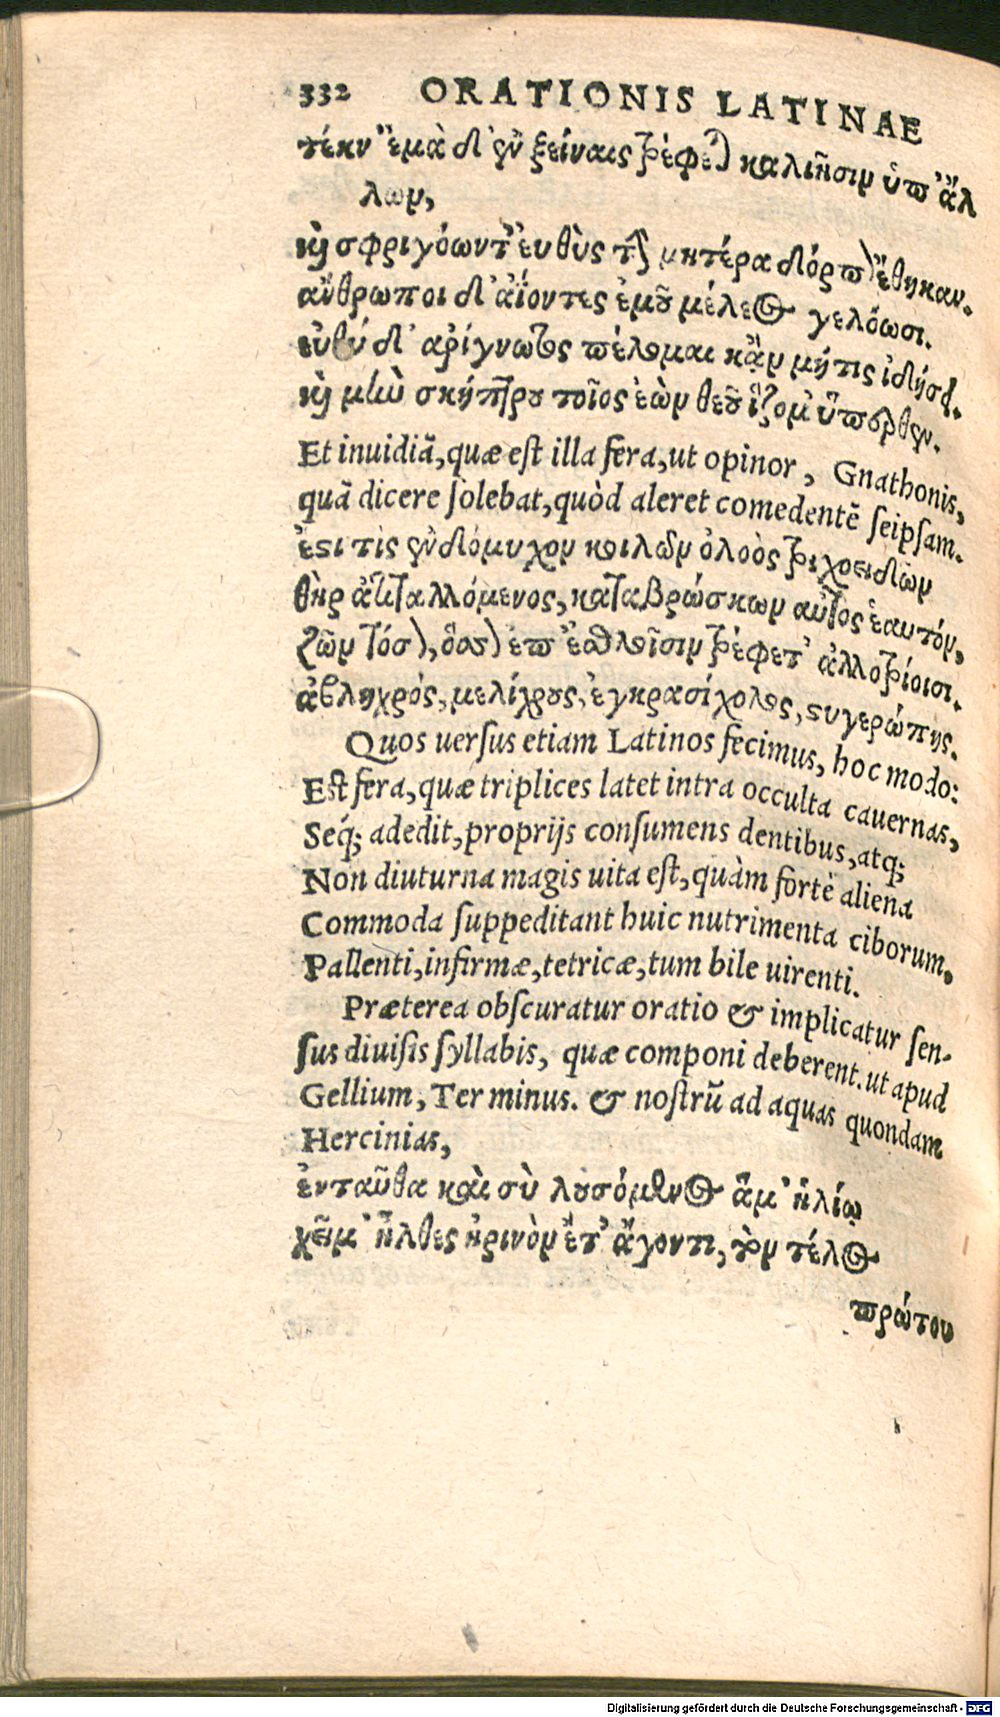 332 ORATIONIS LATINAE
τέκν' ἐμὰ δ' ἐν ξείναις τρέφεται καλιῆσιν ὑπ' ἄλ
λων,
καὶ σφριγόωντ' εὐθὺς τὴν μητέρα διόρπ) ἔθηκαν.
ἄνθρωποι δ' ἀΐοντες ἐμοῦ μέλεος γελόωσι.
εὐθύ δ' ἀρίγνωτος πέλομαι κἂν μήτις ἰδήσῃ.
καὶ μὴν σκήπτρου τοῖος ἐὼν θεοῦ ἵζομ' ὕπερθεν.
Et inuidiã, quæ est illa fera, ut opinor, Gnathonis,
quã dicere solebat, quòd aleret comedentẽ seipsam.
ἔστι τὶς ἐνδόμυχον κοιλὴν ὀλοὸς τριχοειδὴν
θὴρ ἀτιταλλόμενος, καταβρώσκων αὐτὸς ἑαυτόν,
ζῶν τόσ), ὅσ) ἐπ' ἐσθλοῖσιν τρέφετ' ἀλλοτρίοισι.
ἀβληχρός, μελίχρους, ἐγκρασίχολος, στυγερώπης.
Quos uersus etiam Latinos fecimus, hoc modo:
Est fera, quæ triplices latet intra occulta cauernas,
Seq́; adedit, proprijs consumens dentibus, atq;
Non diuturna magis uita est, quàm fortè aliena
Commoda suppeditant huic nutrimenta ciborum,
Pallenti, infirmæ, tetricæ, tum bile uirenti.
Præterea obscuratur oratio & implicatur sen-
sus diuisis syllabis, quæ componi deberent. ut apud
Gellium, Ter minus. & nostrũ ad aquas quondam
Hercinias,
ἐνταῦθα καὶ σὺ λουσόμενος ἅμ' ἡλίῳ
χεῖμ' ἦλθες ἠρινὸν ἔτ' ἄγοντι, τὸν τέλος
πρώτου
Digitalisierung gefördert durch die Deutsche Forschungsgemeinschaft - DFG